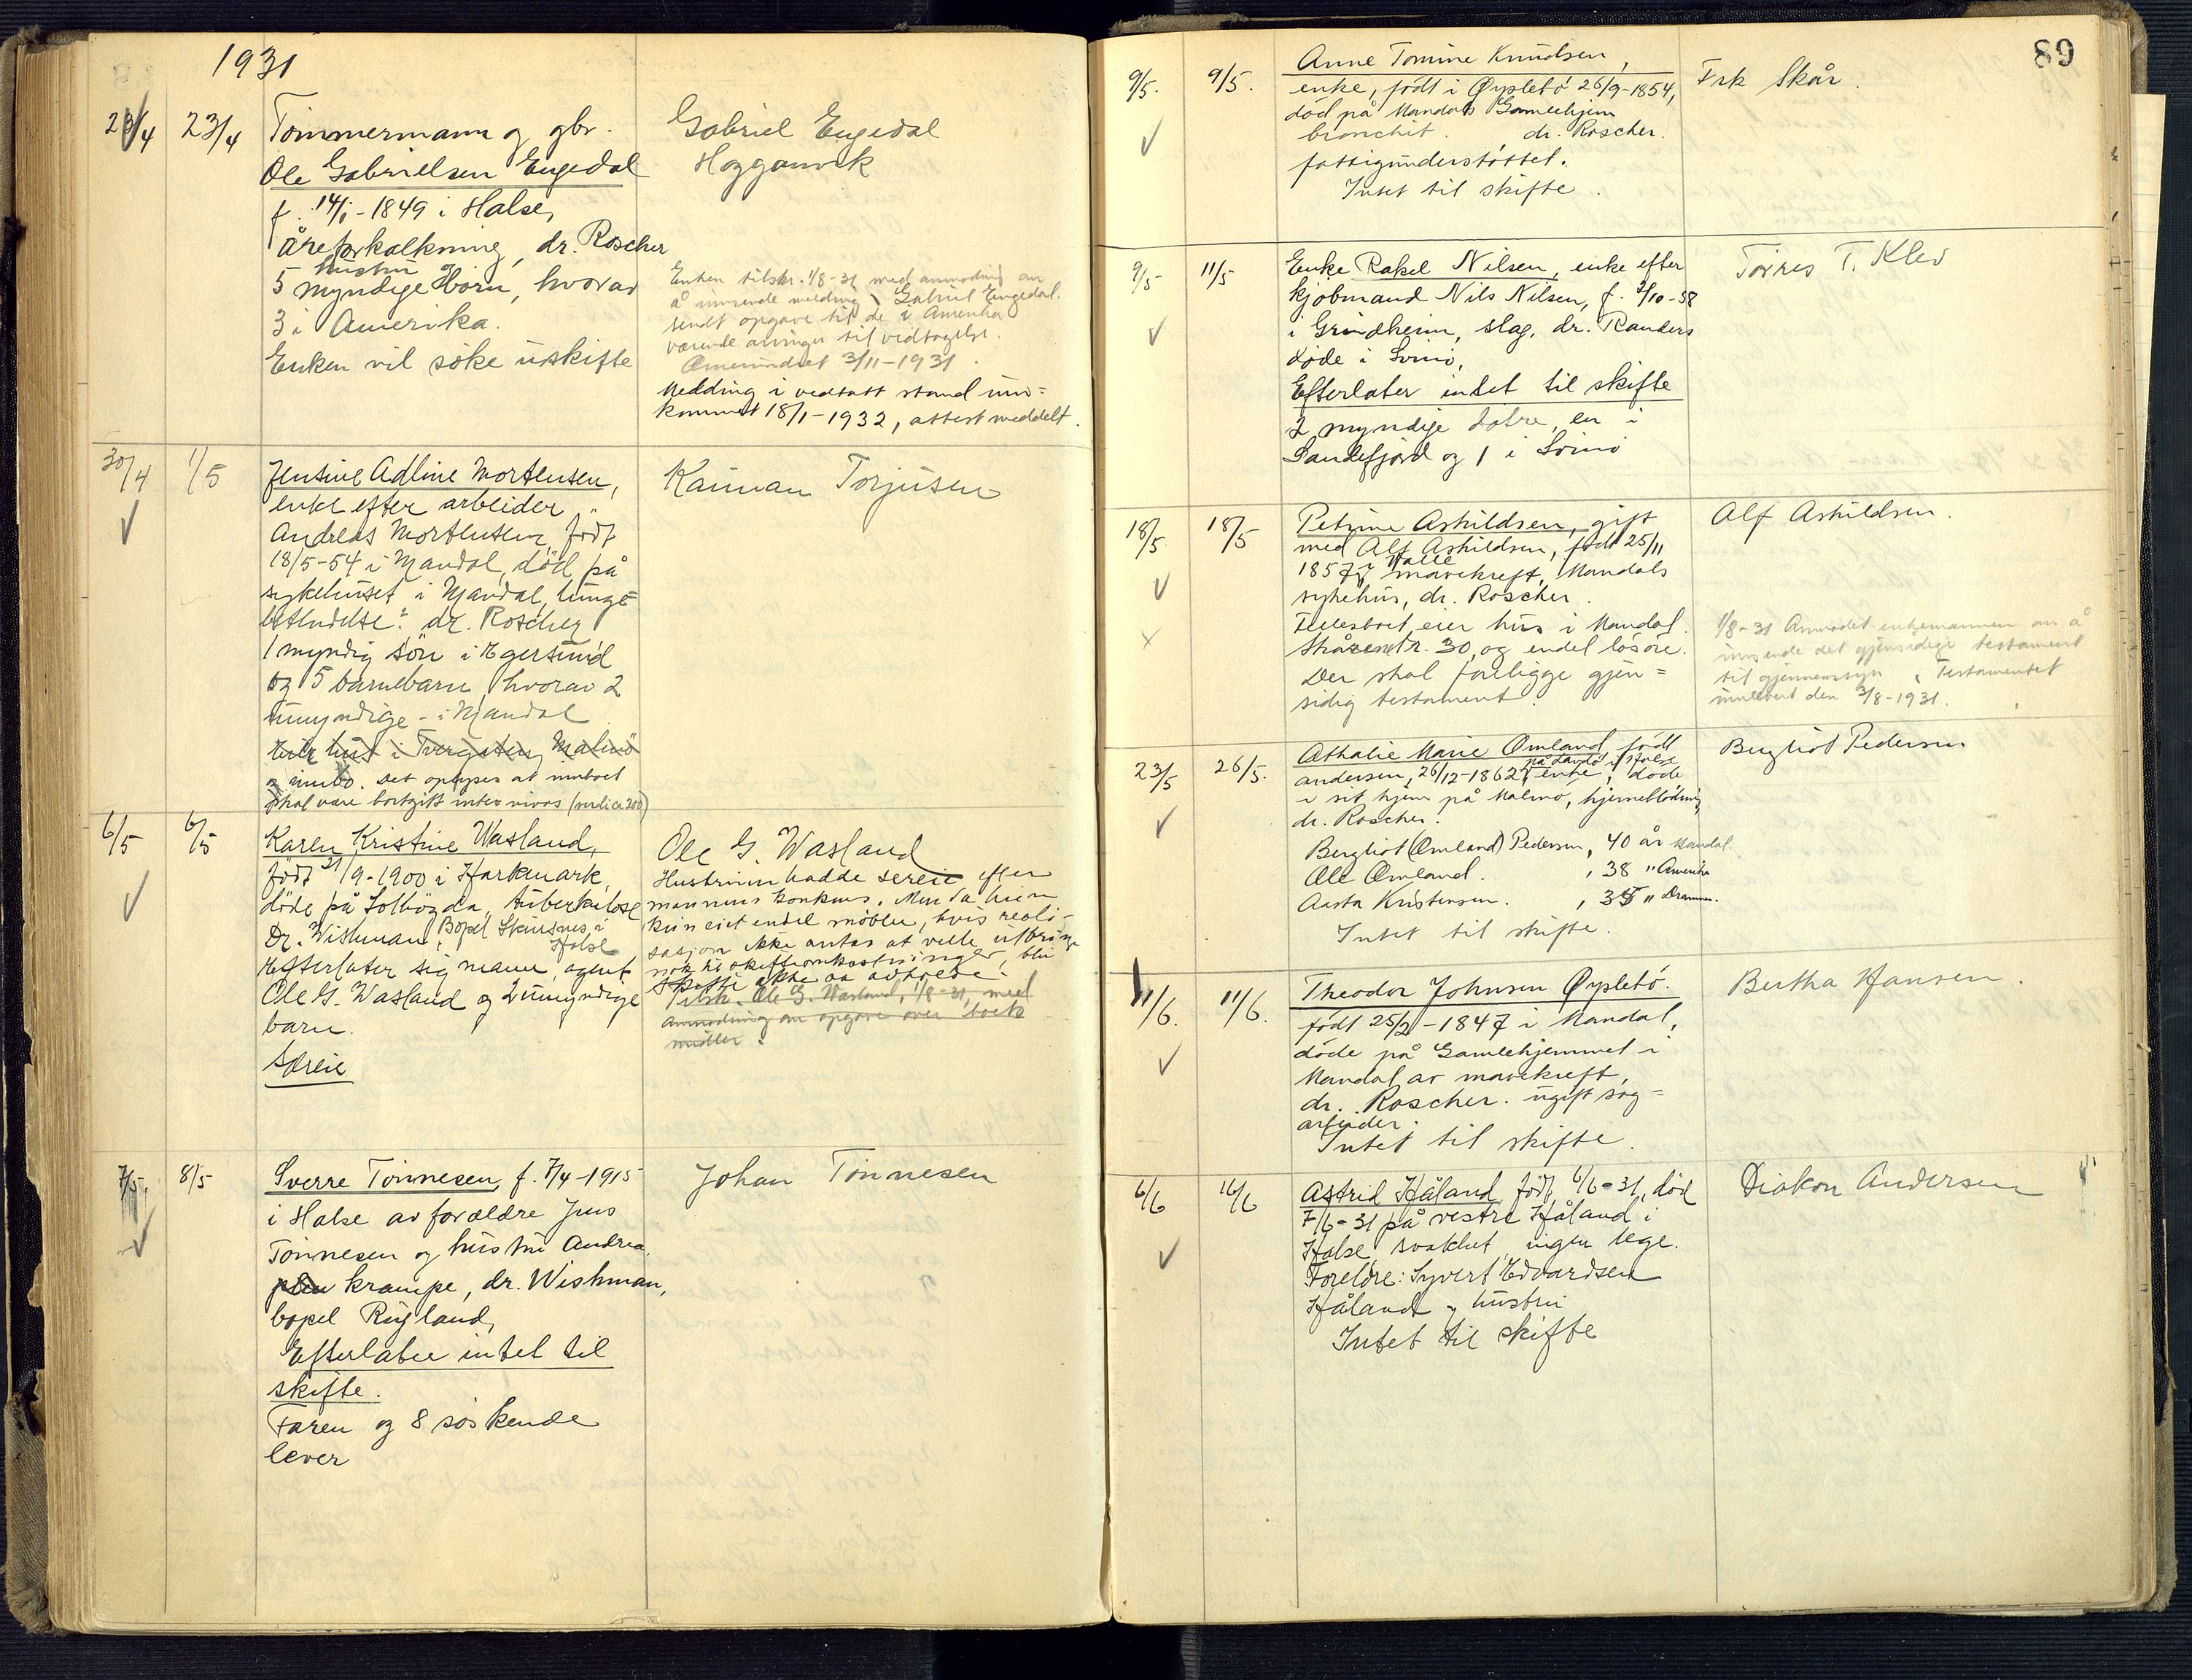 1931
23/4 23/4 Tømmermann og gbr. Gabriel Engedal
Ole Gabrielsen Engedal Hogganvik
f. 14/1-1849 i Halse,
åreforkalkning, dr. Roscher
hustru og
5 myndige børn, hvorav
3 i Amerika.
Enken vil søke uskifte
Enken tilskr. 1/8-31 med anmodning om
å innsende melding, Gabriel Engedal.
sendt opgave til de i Amerika
værende arvinger til vedtagelse.
3/11-1931.
Melding i vedtatt stand inn=
kommet 18/1-1932, attest meddelt.
30/4 1/5 Jensine Adline Mortensen, Torjusen
enke efter arbeider
Andreas Mortensen, født
18/5-54 i Mandal, død på
sykehuset i Mandal, lunge
betendelse? dr. Roscher
1 myndig søn i Egersund
og 5 barnebarn, hvorav 2
umyndige - i Mandal
Eier hus i Malmø
og innbo. Det oplyses at innboet
skal være bortgitt inter vivos
6/5 6/5 Karen Kristine Wasland, Ole G. Wasland
født 21/9-1900 i Harkmark,
døde på Solhøgda, tuberkulose
Dr. Wishman, Bopel i
Halse
Efterlater sig mann, agent
Ole G. Wasland og 2 umyndige
barn.
Særeie
Hustruen hadde særeie efter
mannens konkurs. Men da hun
kun eiet endel møbler, hvis reali-
sasjon ikke antas at ville utbringe
nok til skifteomkostninger, blir
skifte ikke at avholde.
Tilskr. Ole G. Wasland, 1/8-31, med
anmodning om opgave over boets
midler.
7/5. 8/5 Sverre Tønnesen, f. 7/4-1915 Johan Tønnesen
i Halse av forældre Jens
Tønnesen og hustru Andrea.
krampe, dr. Wishman,
bopel Rugland,
Efterlater intet til
skifte.
Faren og 8 søskende
lever
89
9/5. 9/5. Anne Tomine Knudsen, Frk Skår.
enke, født i Øyslebø 26/9-1854,
død på Mandals Gamlehjem
bronchit. dr. Roscher.
fattigunderstøttet.
Intet til skifte.
9/5 11/5 Enke Rakel Nilsen, enke efter Tørres T. Klev
kjøbmand Nils Nilsen, f. /10-58
i Grindheim, slag, dr. Randers
døde i Svinø,
Efterlater intet til skifte
2 myndige døtre, en i
Sandefjord og 1 i Svinø
18/5 18/5 Petrine Askildsen, gift Alf Askildsen.
med Alf Askildsen, født 25/11
1857 i Halse mavekreft, Mandals
sykehus, dr. Roscher.
Fellesboet eier hus i Mandal.
Skårendr. 30, og endel løsøre.
Der skal foreligge gjen=
sidig testament.
1/8-31 Anmodet enkemannen om å
innsende det gjensidige testament
til gjennemsyn. Testamentet
innlevert den 3/8-1931.
23/5 26/5. Athalie Marie Omland, født Bergliot Pedersen
Andersen, 26/12-1862 på i Halse, enke, døde
i sit hjem på Malmø, hjerneblødning,
dr. Roscher.
Bergliot (Omland) Pedersen, 40 år Mandal.
Ole Omland. , 38 " Amerika
Aasta Kristensen. , 35 " Drammen.
Intet til skifte.
11/6. 11/6. Theodor Johnsen Øyslebø. Bertha Hansen.
født 25/2-1847 i Mandal,
døde på Gamlehjemmet i
Mandal av mavekreft,
dr. Roscher. ugift sag=
arbeider.
Intet til skifte.
6/6 16/6 Astrid Håland, født 6/6-31, død Diakon Andersen
7/6-31 på vestre Håland i
Halse, svakhet, ingen lege.
Foreldre: Syvert Edvardsen
Håland og hustru
Intet til skifte